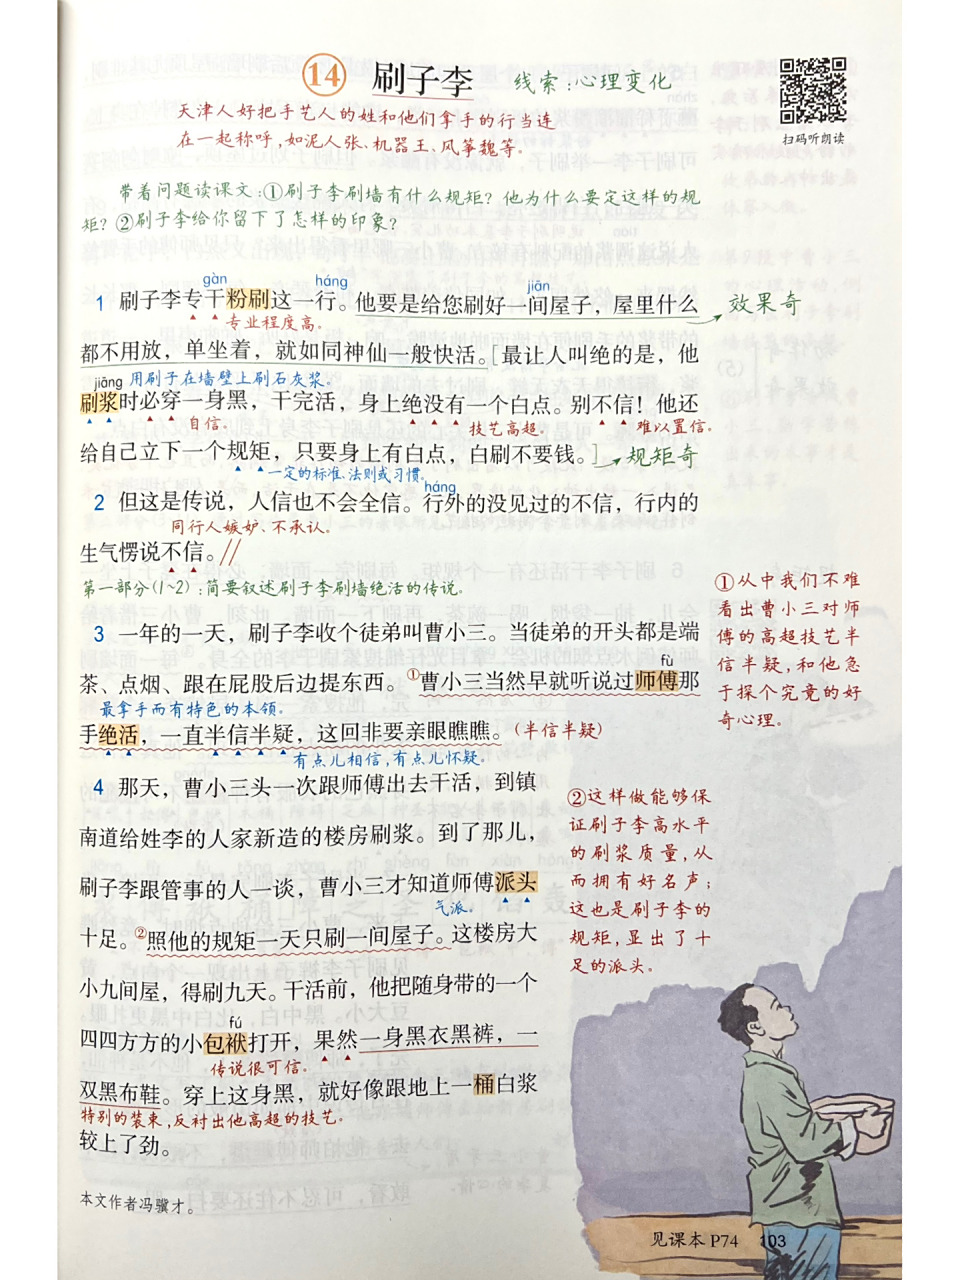 14 刷子李 线索:心理变化
扫码听朗读
天津人好把手艺人的姓和他们拿手的行当连
在一起称呼,如泥人张、机器王、风筝魏等。
带着问题读课文:①刷子李刷墙有什么规矩?他为什么要定这样的规
矩?②刷子李给你留下了怎样的印象?
gàn háng jiān
1 刷子李专干粉刷这一行。他要是给您刷好一间屋子,屋里什么
效果奇
专业程度高。
都不用放,单坐着,就如同神仙一般快活。[最让人叫绝的是,他
jiāng 用刷子在墙壁上刷石灰浆。
刷浆时必穿一身黑,干完活,身上绝没有一个白点。别不信!他还
自信。 技艺高超。 难以置信。
给自己立下一个规矩,只要身上有白点,白刷不要钱。]→规矩奇
一定的标准、法则或习惯。
háng
2 但这是传说,人信也不会全信。行外的没见过的不信,行内的
同行人嫉妒、不承认。
生气愣说不信。//
第一部分(1~2):简要叙述刷子李刷墙绝活的传说。
3 一年的一天,刷子李收个徒弟叫曹小三。当徒弟的开头都是端
fù
茶、点烟、跟在屁股后边提东西。①曹小三当然早就听说过师傅那
最拿手而有特色的本领。
手绝活,一直半信半疑,这回非要亲眼瞧瞧。(半信半疑)
有点儿相信,有点儿怀疑。
①从中我们不难
看出曹小三对师
傅的高超技艺半
信半疑,和他急
于探个究竟的好
奇心理。
4 那天,曹小三头一次跟师傅出去干活,到镇
南道给姓李的人家新造的楼房刷浆。到了那儿,
刷子李跟管事的人一谈,曹小三才知道师傅派头
气派。
十足。②照他的规矩一天只刷一间屋子。这楼房大
小九间屋,得刷九天。干活前,他把随身带的一个
fú
四四方方的小包袱打开,果然一身黑衣黑裤,一
传说很可信。
双黑布鞋。穿上这身黑,就好像跟地上一桶白浆
特别的装束,反衬出他高超的技艺。
较上了劲。
②这样做能够保
证刷子李高水平
的刷浆质量,从
而拥有好名声;
这也是刷子李的
规矩,显出了十
足的派头。
本文作者冯骥才。
见课本 P74 103